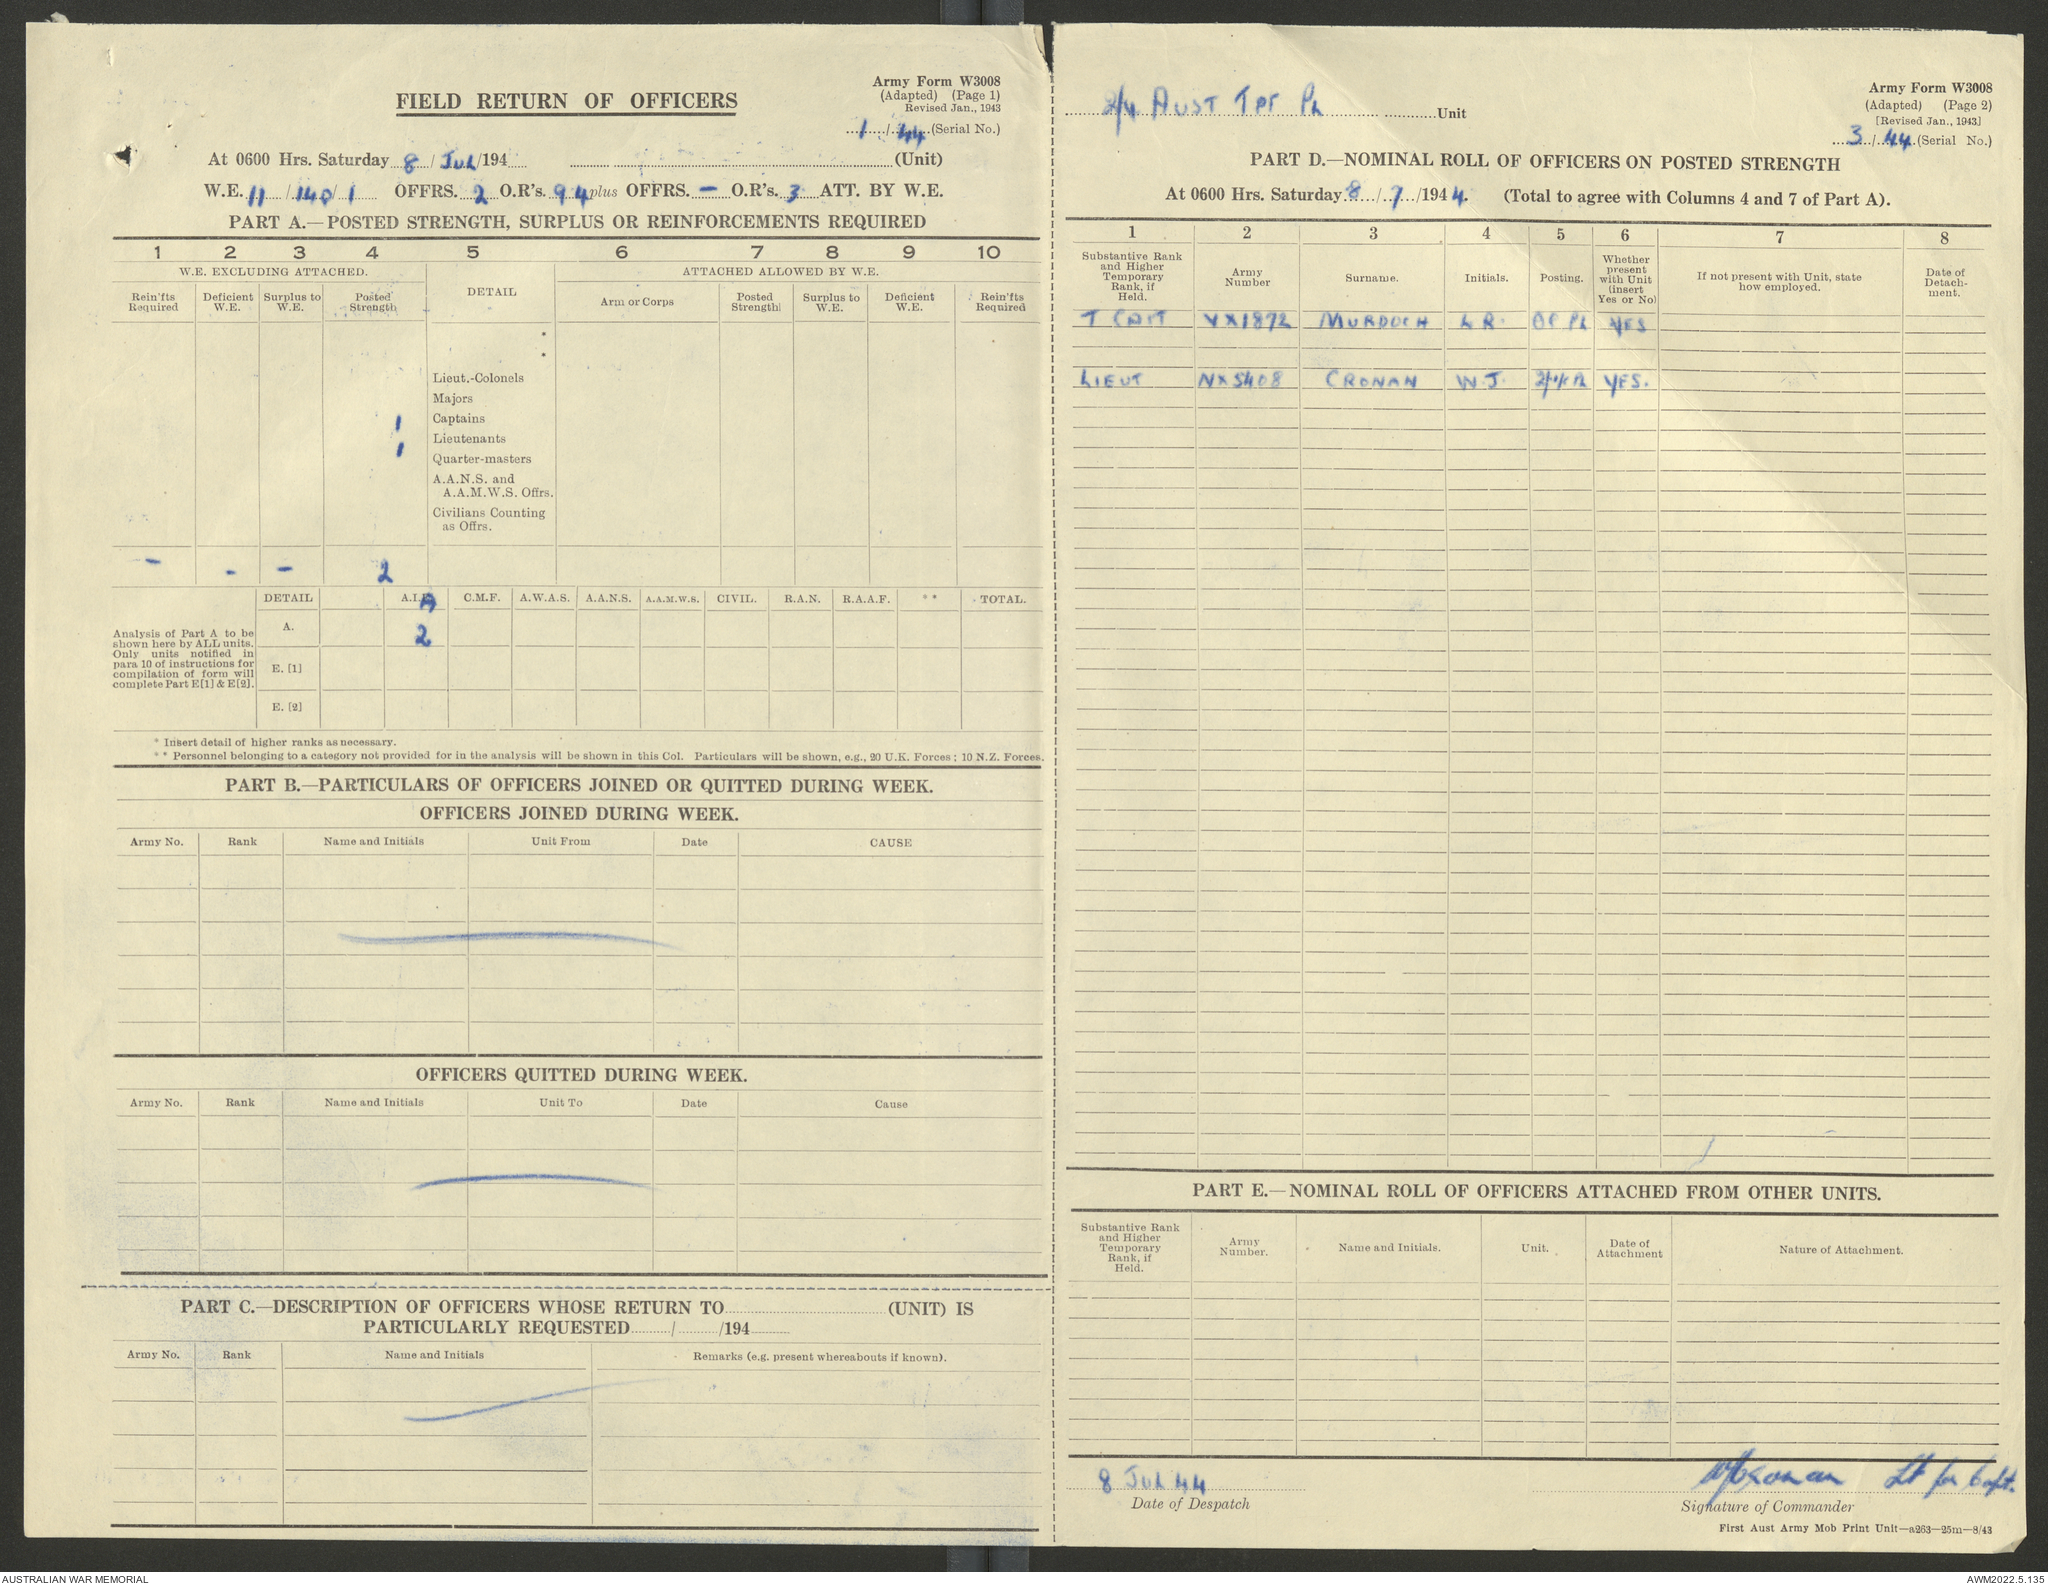 Army Form W3008
(Adapted) (Page 1)
Revised Jan., 1943
FIELD RETURN OF OFFICERS
1/44 (Serial No.)
At 0600 Hrs. Saturday 8/JUL/194 (Unit)
W.E. 11/140/1 OFFRS. 2 O.R's. 94 plus OFFRS. — O.R's. 3 ATT. BY W.E.
PART A.—POSTED STRENGTH, SURPLUS OR REINFORCEMENTS REQUIRED
1 2 3 4 5 6 7 8 9 10
W.E. EXCLUDING ATTACHED. DETAIL ATTACHED ALLOWED BY W.E.
Rein'fts Required Deficient W.E. Surplus to W.E. Posted Strength Arm or Corps Posted Strength Surplus to W.E. Deficient W.E. Rein'fts Required
*
*
Lieut.-Colonels
Majors
1 Captains
Lieutenants
1
Quarter-masters
A.A.N.S. and
A.A.M.W.S. Offrs.
Civilians Counting
as Offrs.
– – – 2
DETAIL A.I.F. C.M.F. A.W.A.S. A.A.N.S. A.A.M.W.S. CIVIL. R.A.N. R.A.A.F. ** TOTAL.
Analysis of Part A to be
shown here by ALL units.
Only units notified in
para 10 of instructions for
compilation of form will
complete Part E[1] & E[2].
A. 2
E. [1]
E. [2]
* Insert detail of higher ranks as necessary.
** Personnel belonging to a category not provided for in the analysis will be shown in this Col. Particulars will be shown, e.g., 20 U.K. Forces; 10 N.Z. Forces.
PART B.—PARTICULARS OF OFFICERS JOINED OR QUITTED DURING WEEK.
OFFICERS JOINED DURING WEEK.
Army No. Rank Name and Initials Unit From Date CAUSE
OFFICERS QUITTED DURING WEEK.
Army No. Rank Name and Initials Unit To Date Cause
PART C.—DESCRIPTION OF OFFICERS WHOSE RETURN TO (UNIT) IS
PARTICULARLY REQUESTED / /194
Army No. Rank Name and Initials Remarks (e.g. present whereabouts if known).
Army Form W3008
(Adapted) (Page 2)
[Revised Jan., 1943]
2/4 AUST TPT PL Unit
3/44 (Serial No.)
PART D.—NOMINAL ROLL OF OFFICERS ON POSTED STRENGTH
At 0600 Hrs. Saturday 8/7/1944. (Total to agree with Columns 4 and 7 of Part A).
1 2 3 4 5 6 7 8
Substantive Rank and Higher Temporary Rank, if Held. Army Number Surname. Initials. Posting. Whether present with Unit (insert Yes or No) If not present with Unit, state how employed. Date of Detach-ment.
T CAPT VX1872 MURDOCH L R. OC PL YES
LIEUT NX5408 CRONAN W.J. PL YES.
PART E.—NOMINAL ROLL OF OFFICERS ATTACHED FROM OTHER UNITS.
Substantive Rank and Higher Temporary Rank, if Held. Army Number. Name and Initials. Unit. Date of Attachment Nature of Attachment.
8 JUL 44
Date of Despatch
WJCronan Lt for Capt.
Signature of Commander
First Aust Army Mob Print Unit—a263—25m—8/43
AUSTRALIAN WAR MEMORIAL
AWM2022.5.135